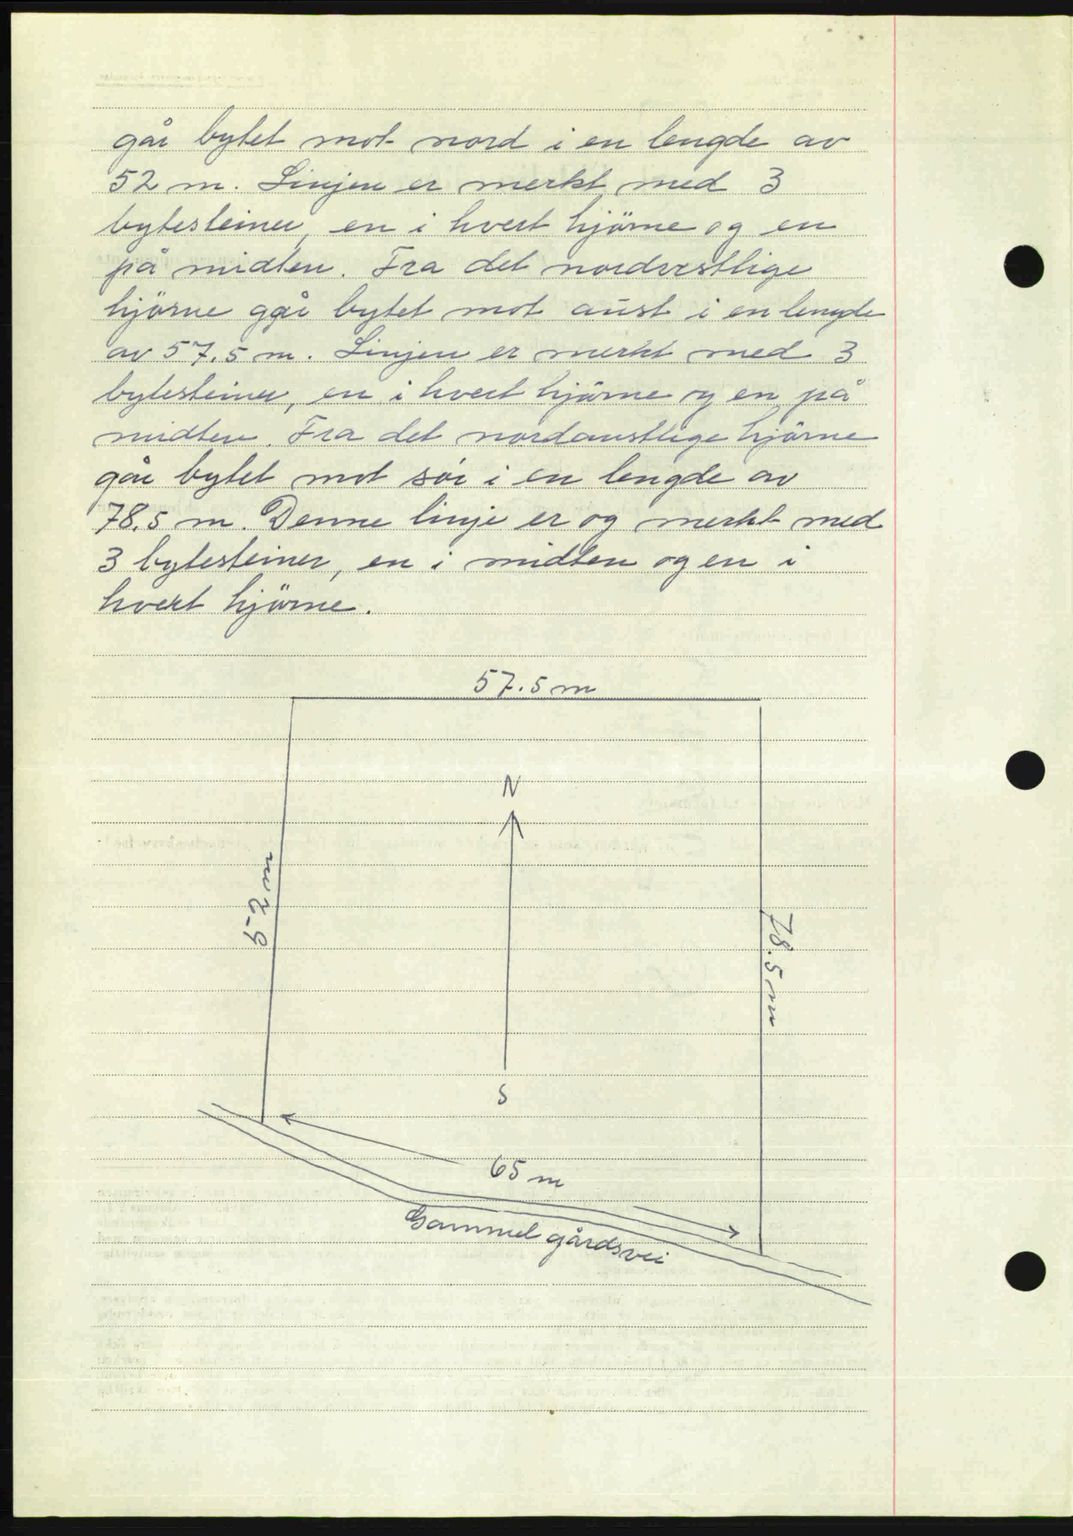 går bytet mot nord i en lengde av
52 m. Linjen er merkt med 3
bytesteiner, en i hvert hjörne og en
på midten. Fra det nordvestlige
hjörne ggår bytet mot aust i en lengde
av 57.5 m. Linjen er merkt med 3
bytesteiner, en i hvert hjörne og en på
midten. Fra det nordaustlige hjörne
går bytet mot sör i en lengde av
78.5 m. Denne linje er og merkt med
3 bytesteiner, en i midten og en i
hvert hjörne.
57.5 m
N
52 m
78.5 m
S
65 m
Gammel gårdsvei